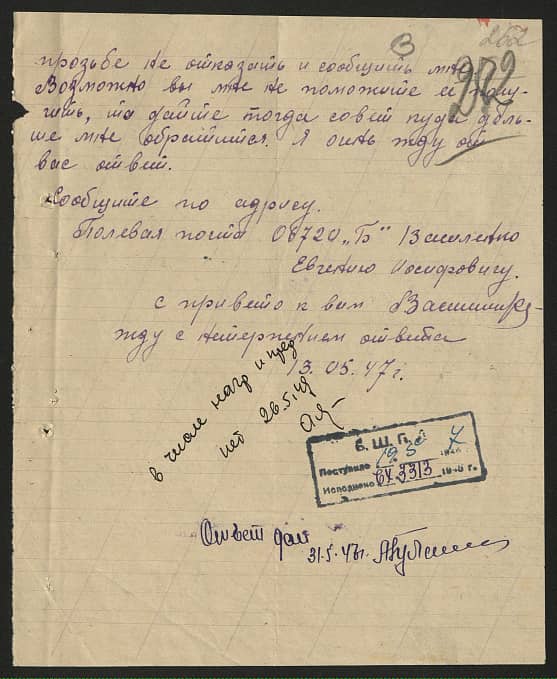 3
262
272
прозьбе не отказать и сообщить мне
Возможно вы мне не поможите ее полу-
чить, то дайте тогда совет куда даль-
ше мне обратится. Я очень жду от
вас ответ.
Сообщите по адресу.
Полевая почта 08720 „Б" Василенко
Евгению Иосифовичу.
с привето к вам Василенко
жду с нетерпением ответа
13.05.47г.
в числе нагр и пред
нет 26.5.47
Б. Ш. П.
Поступило 19.5 194 7
Исполнено ВХ 3313 194 г.
Ответ дан
31.5.47г.